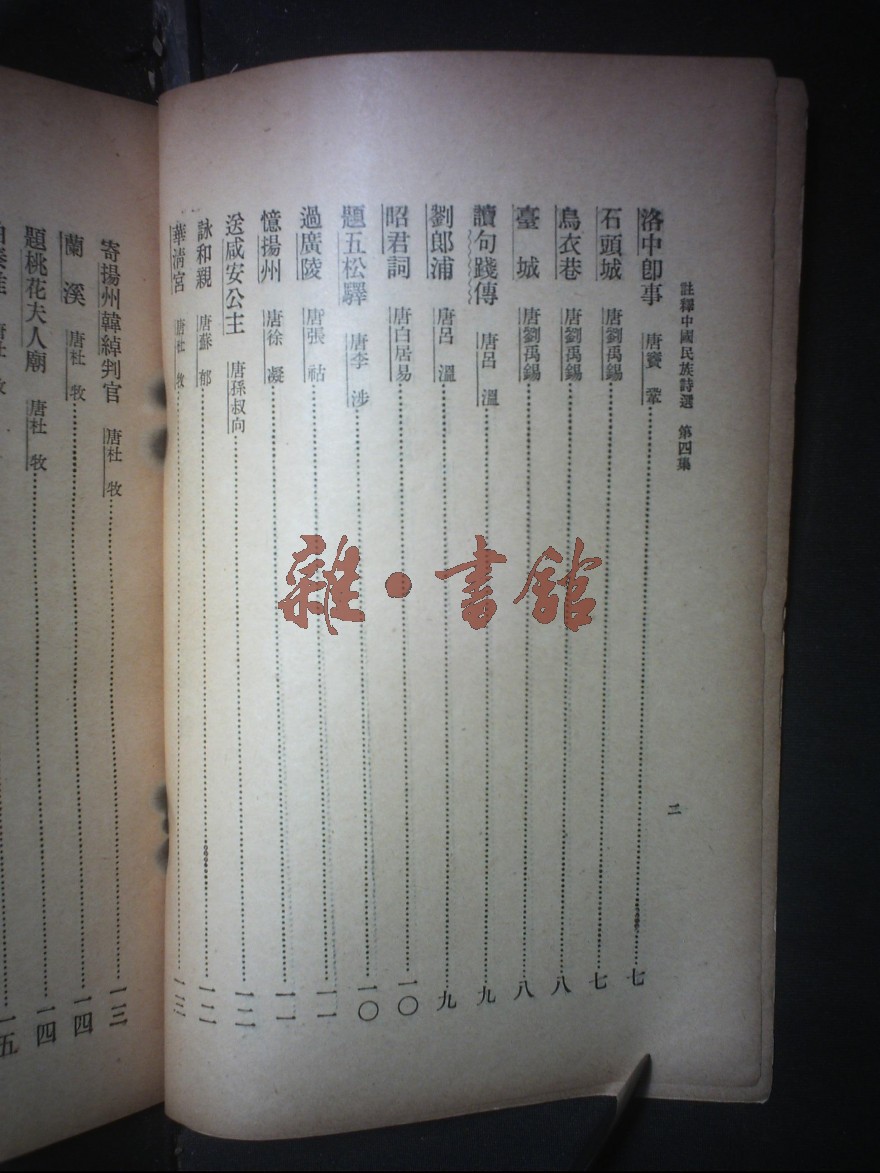 註釋中國民族詩選 第四集
二
洛中卽事 唐竇鞏 七
石頭城 唐劉禹錫 七
烏衣巷 唐劉禹錫 八
臺城 唐劉禹錫 八
讀句踐傳 唐呂溫 九
劉郎浦 唐呂溫 九
昭君詞 唐白居易 一〇
題五松驛 唐李涉 一〇
過廣陵 唐張祜 一一
憶揚州 唐徐凝 一一
送咸安公主 唐孫叔向 一二
詠和親 唐蘇郁 一二
華淸宮 唐杜牧 一三
寄揚州韓綽判官 唐杜牧 一三
蘭溪 唐杜牧 一四
題桃花夫人廟 唐杜牧 一四
唐杜牧 一五
雜·書館